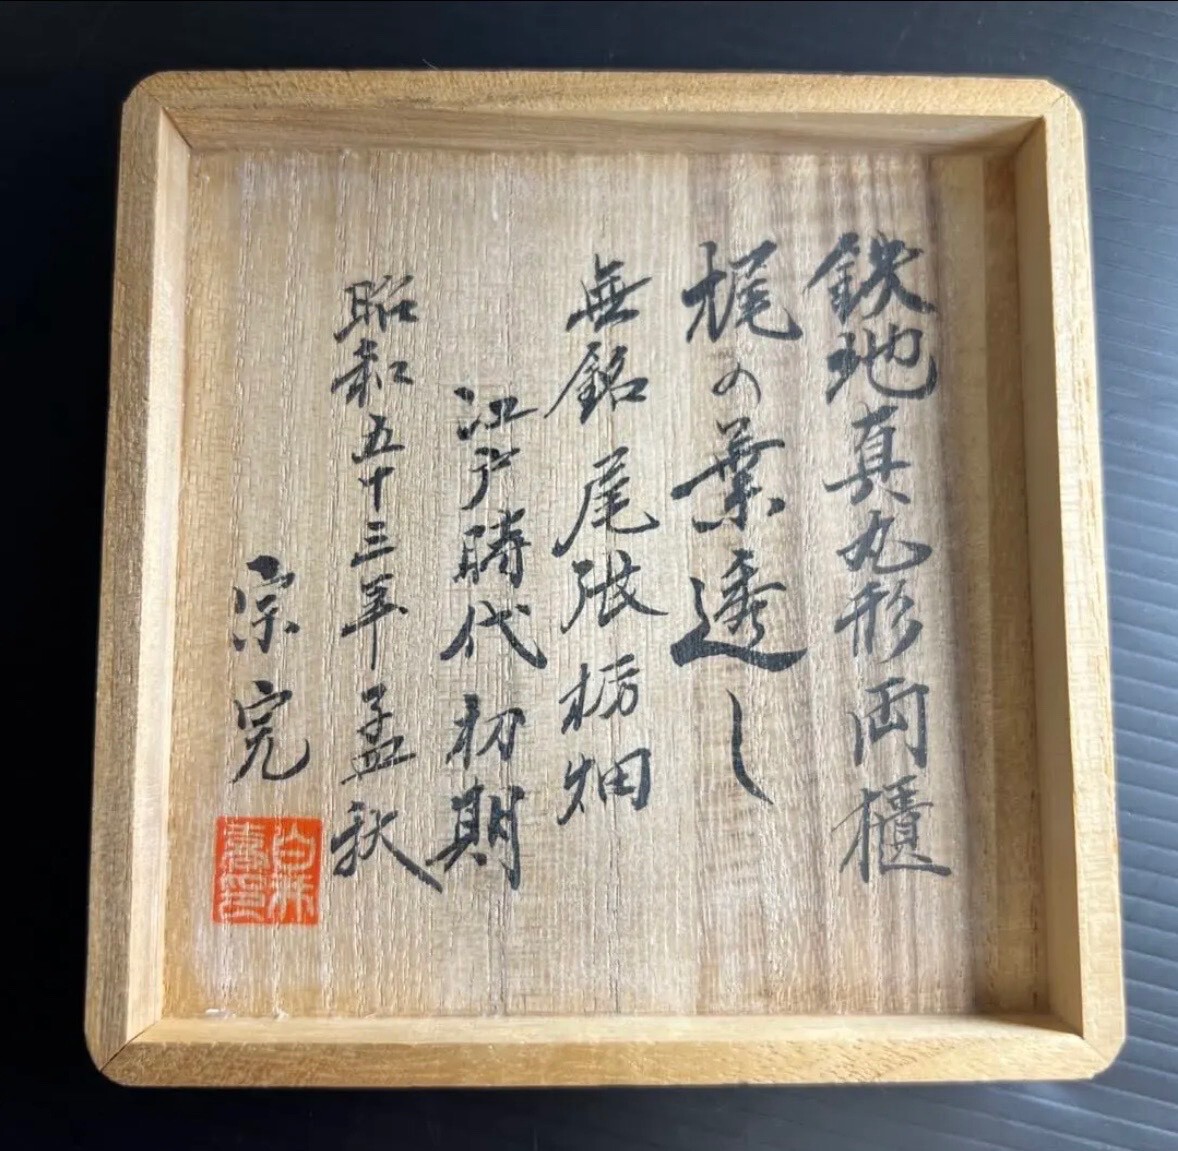 鉄地真丸形両櫃
梶の葉透し
無銘 尾張栃畑
江戸時代初期
昭和五十三年孟秋
宗完